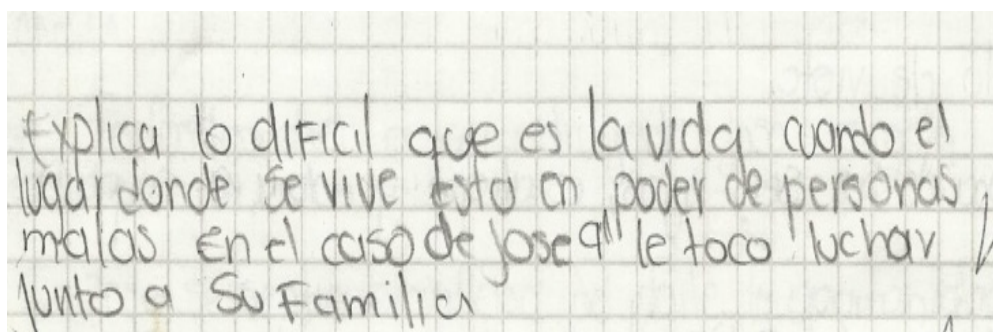 Explica lo diFicil que es la vida cuando el
lugar donde se vive esta en poder de personas
malas En el caso de jose a el le toco luchar
junto a Su Familia